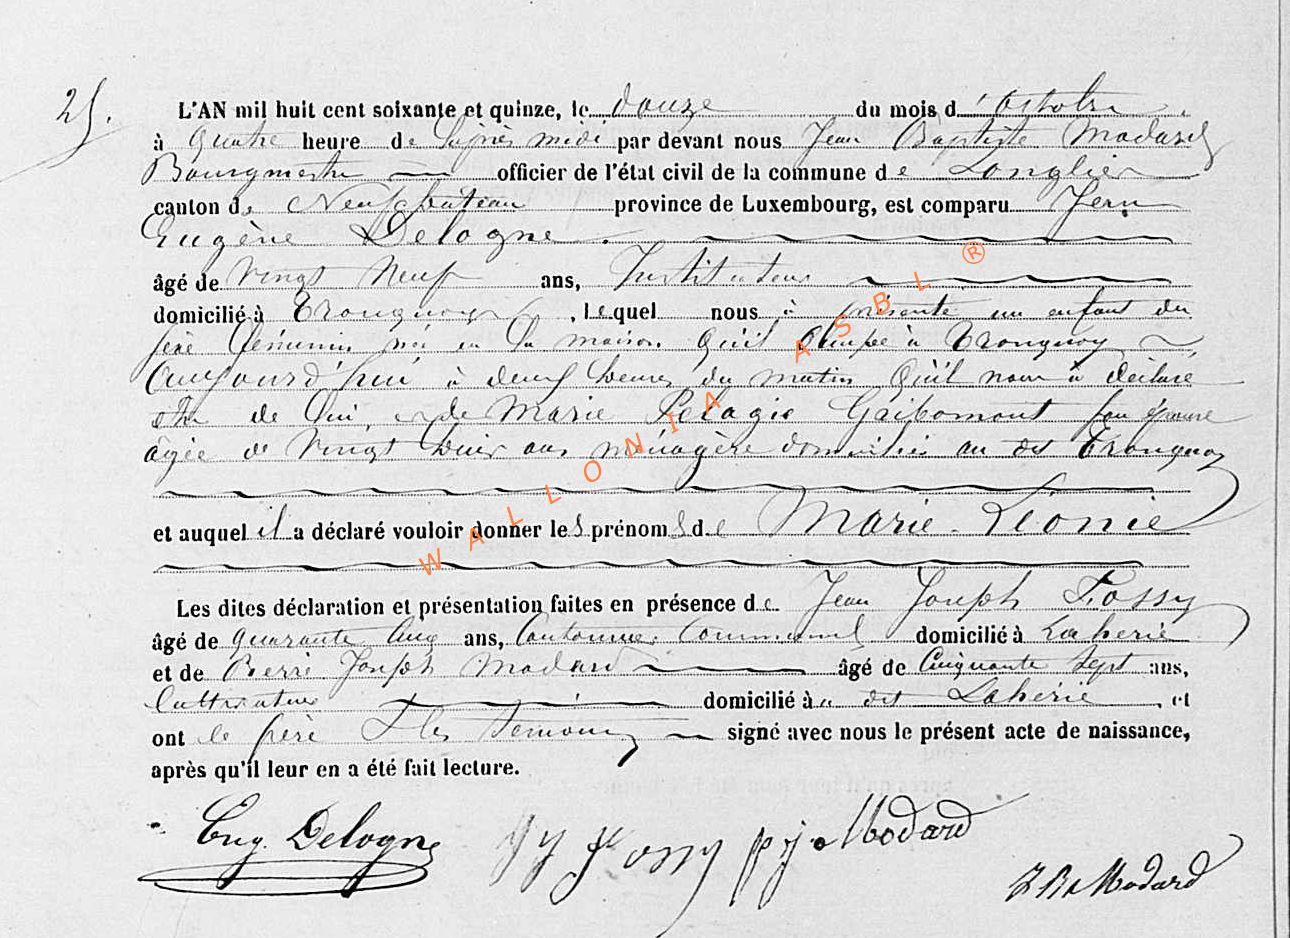 25.
L'AN mil huit cent soixante et quinze, le douze du mois d'Octobre
à quatre heure de l'après midi par devant nous Jean Baptiste Modard
Bourgmestre officier de l'état civil de la commune de Longlier
canton de Neufchateau province de Luxembourg, est comparu Jean
Eugène Delogne
âgé de Vingt Neuf ans, Instituteur
domicilié à Tronquoy, lequel nous à présenté un enfant du
sexe féminin née en la maison qu'il occupe à Tronquoy
Aujourd'hui à deux heures du matin qu'il nous à déclaré
être de lui et de Marie Pélagie Gribomont son épouse
âgée de Vingt huit ans ménagère domiciliée au dit Tronquoy
et auquel il a déclaré vouloir donner les prénoms de Marie-Léonie
Les dites déclaration et présentation faites en présence de Jean Joseph Fossy
âgé de quarante cinq ans, Cantonnier Communal domicilié à Laherie
et de Pierre Joseph Modard âgé de Cinquante Sept ans,
Cultivateur domicilié à a dit Laherie, et
ont le père & les témoins signé avec nous le présent acte de naissance,
après qu'il leur en a été fait lecture.
Eug. Delogne JJ Fossy pj. Modard
J B Modard
WALLONIA ASBL ®